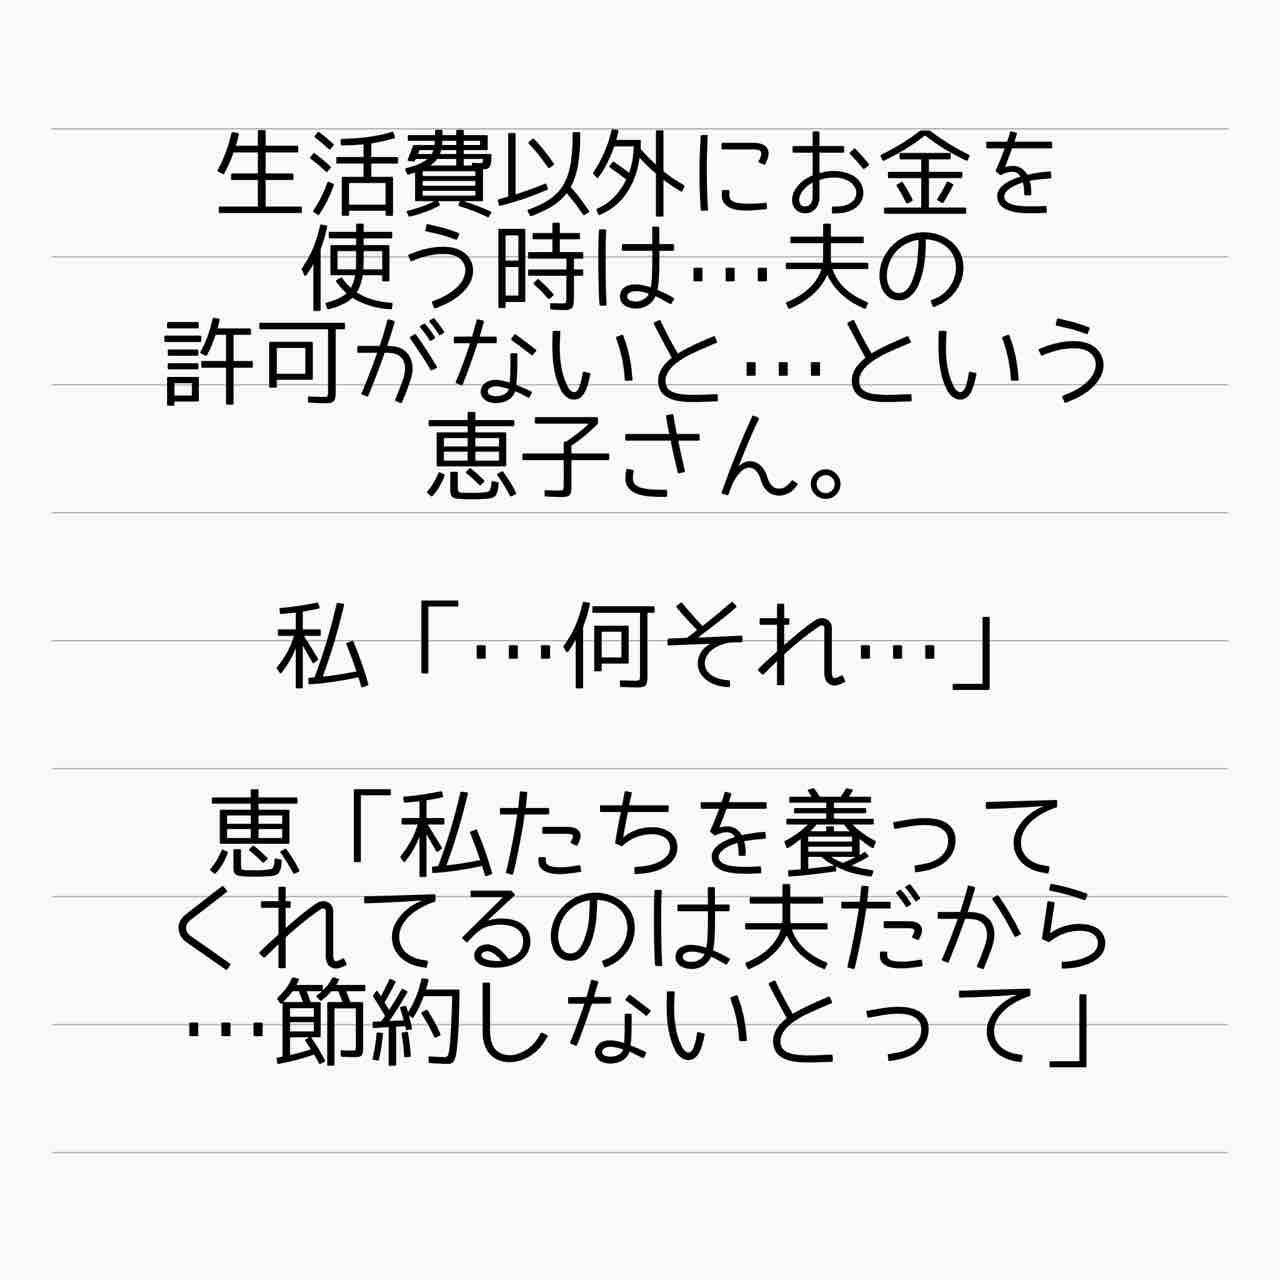 生活費以外にお金を
使う時は…夫の
許可がないと…という
恵子さん。
私「…何それ…」
恵「私たちを養って
くれてるのは夫だから
…節約しないとって」